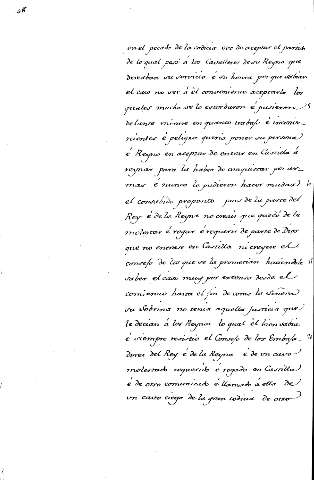 en el pecado de la codicia uvo de aceptar el partido
de lo qual pesó a los Cavalleros de su Reyno que
deseaban su servicio é su honra por que sabian
el caso no ser á él conveniente aceptarlo los
quales mucho se lo estorbaron é pusieron 5
delante mirase en quanto trabajo é inconve-
nientes é peligro queria poner su persona
é Reyno en aceptar de entrar en Castilla á
reynar para la haber de conquistar por ar-
mas é nunca lo pudieron hacer mudar
el concebido proposito pues de la parte del
Rey é de la Reyna no creais que quedó de le
molestar é rogar é requerir de parte de Dios
que no entrase en Castilla ni creyese el
consejo de los que se la prometian haciendole
saber el caso muy por extenso desde el
comienzo hasta el fin de como la Señora
su Sobrina no tenia aquella justicia que
le decian á los Reynos lo qual el bien sabia
é siempre resistió el Consejo de los Embaja-
dores del Rey é de la Reyna é de un cavo
molestado requerido é rogado en Castilla
é de otro comunicado é llamado á ella de
un cavo ciego de la gran codicia de otro